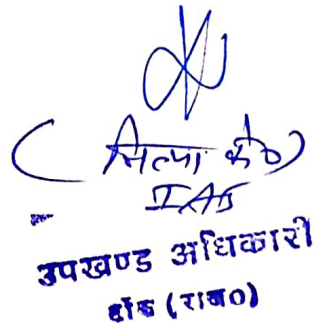 (मिल्पा के०)
IAS
उपखण्ड अधिकारी
टोंक (राज०)